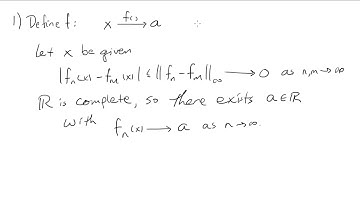 1) Define f: x —f(.)→ a
Let x be given
|fₙ(x) - fₘ(x)| ≤ ||fₙ - fₘ||∞ → 0 as n,m→∞
ℝ is complete, so there exists a∈ℝ
with fₙ(x) → a as n→∞.